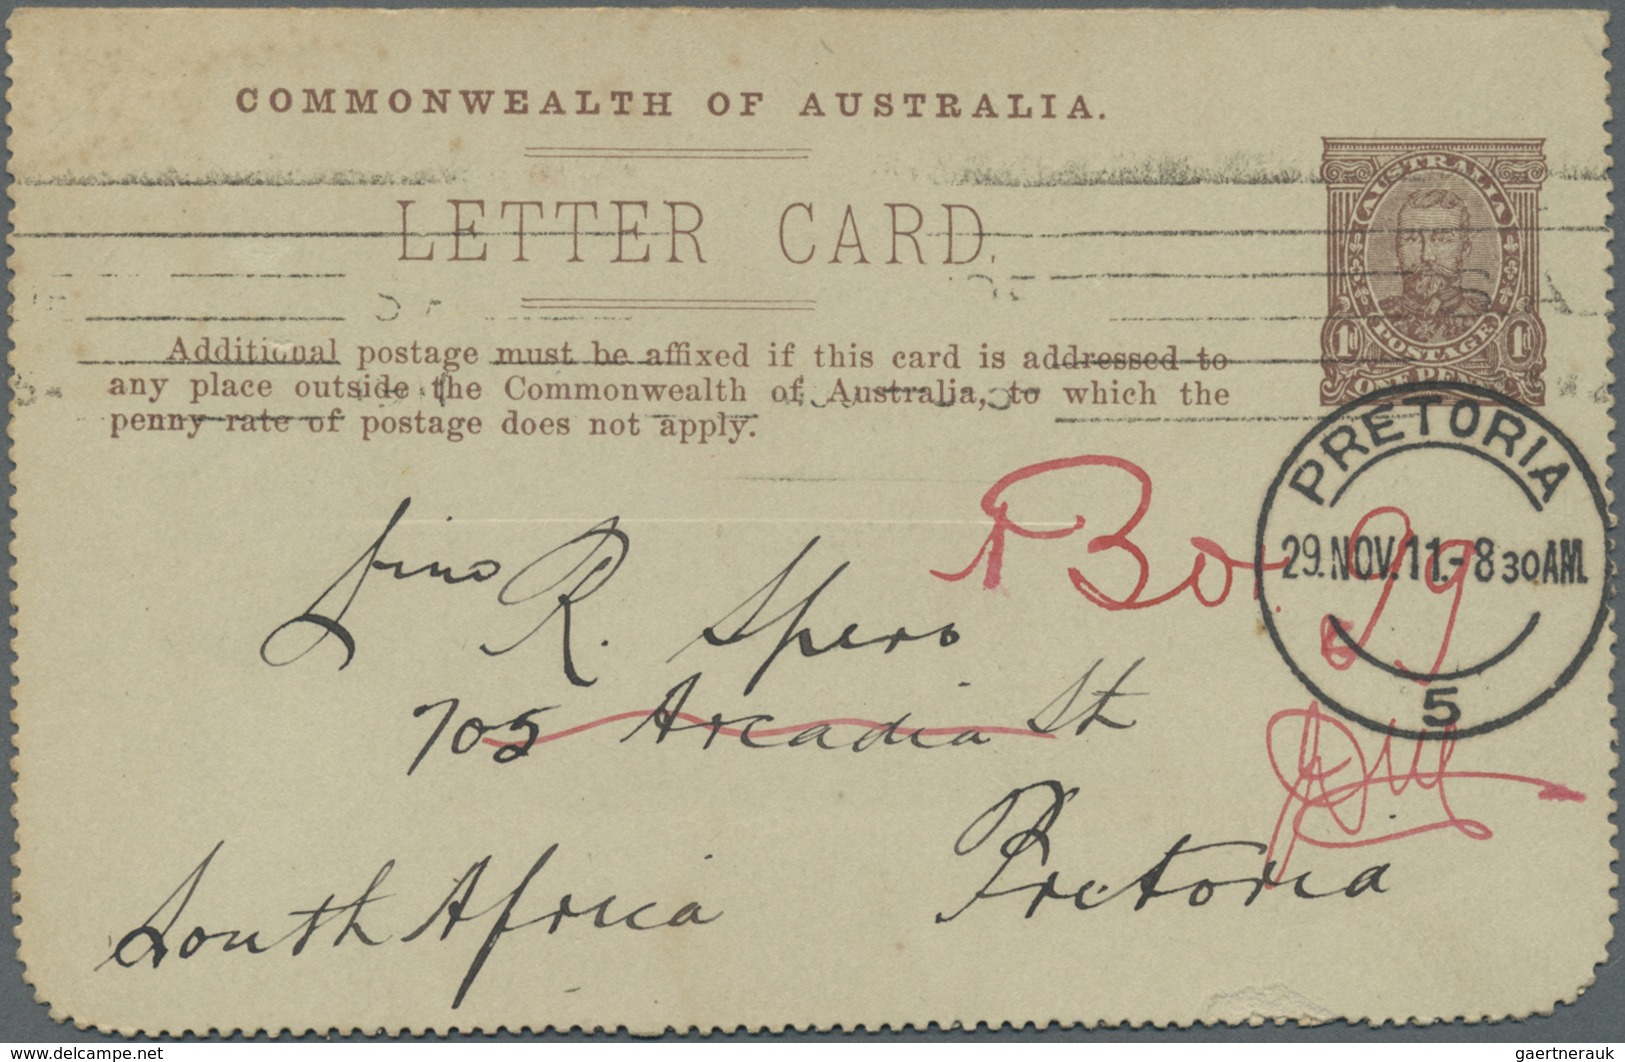 COMMONWEALTH OF AUSTRALIA.
LETTER CARD.
AUSTRALIA
POSTAGE
1d 1d
ONE PENNY
Additional postage must be affixed if this card is addressed to
any place outside the Commonwealth of Australia, to which the
penny rate of postage does not apply.
PRETORIA
29.NOV.11.-8 30AM.
5
Box 99
R. Spero
705 Arcadia St
Pretoria
South Africa
www.delcampe.net
gaertnerauk